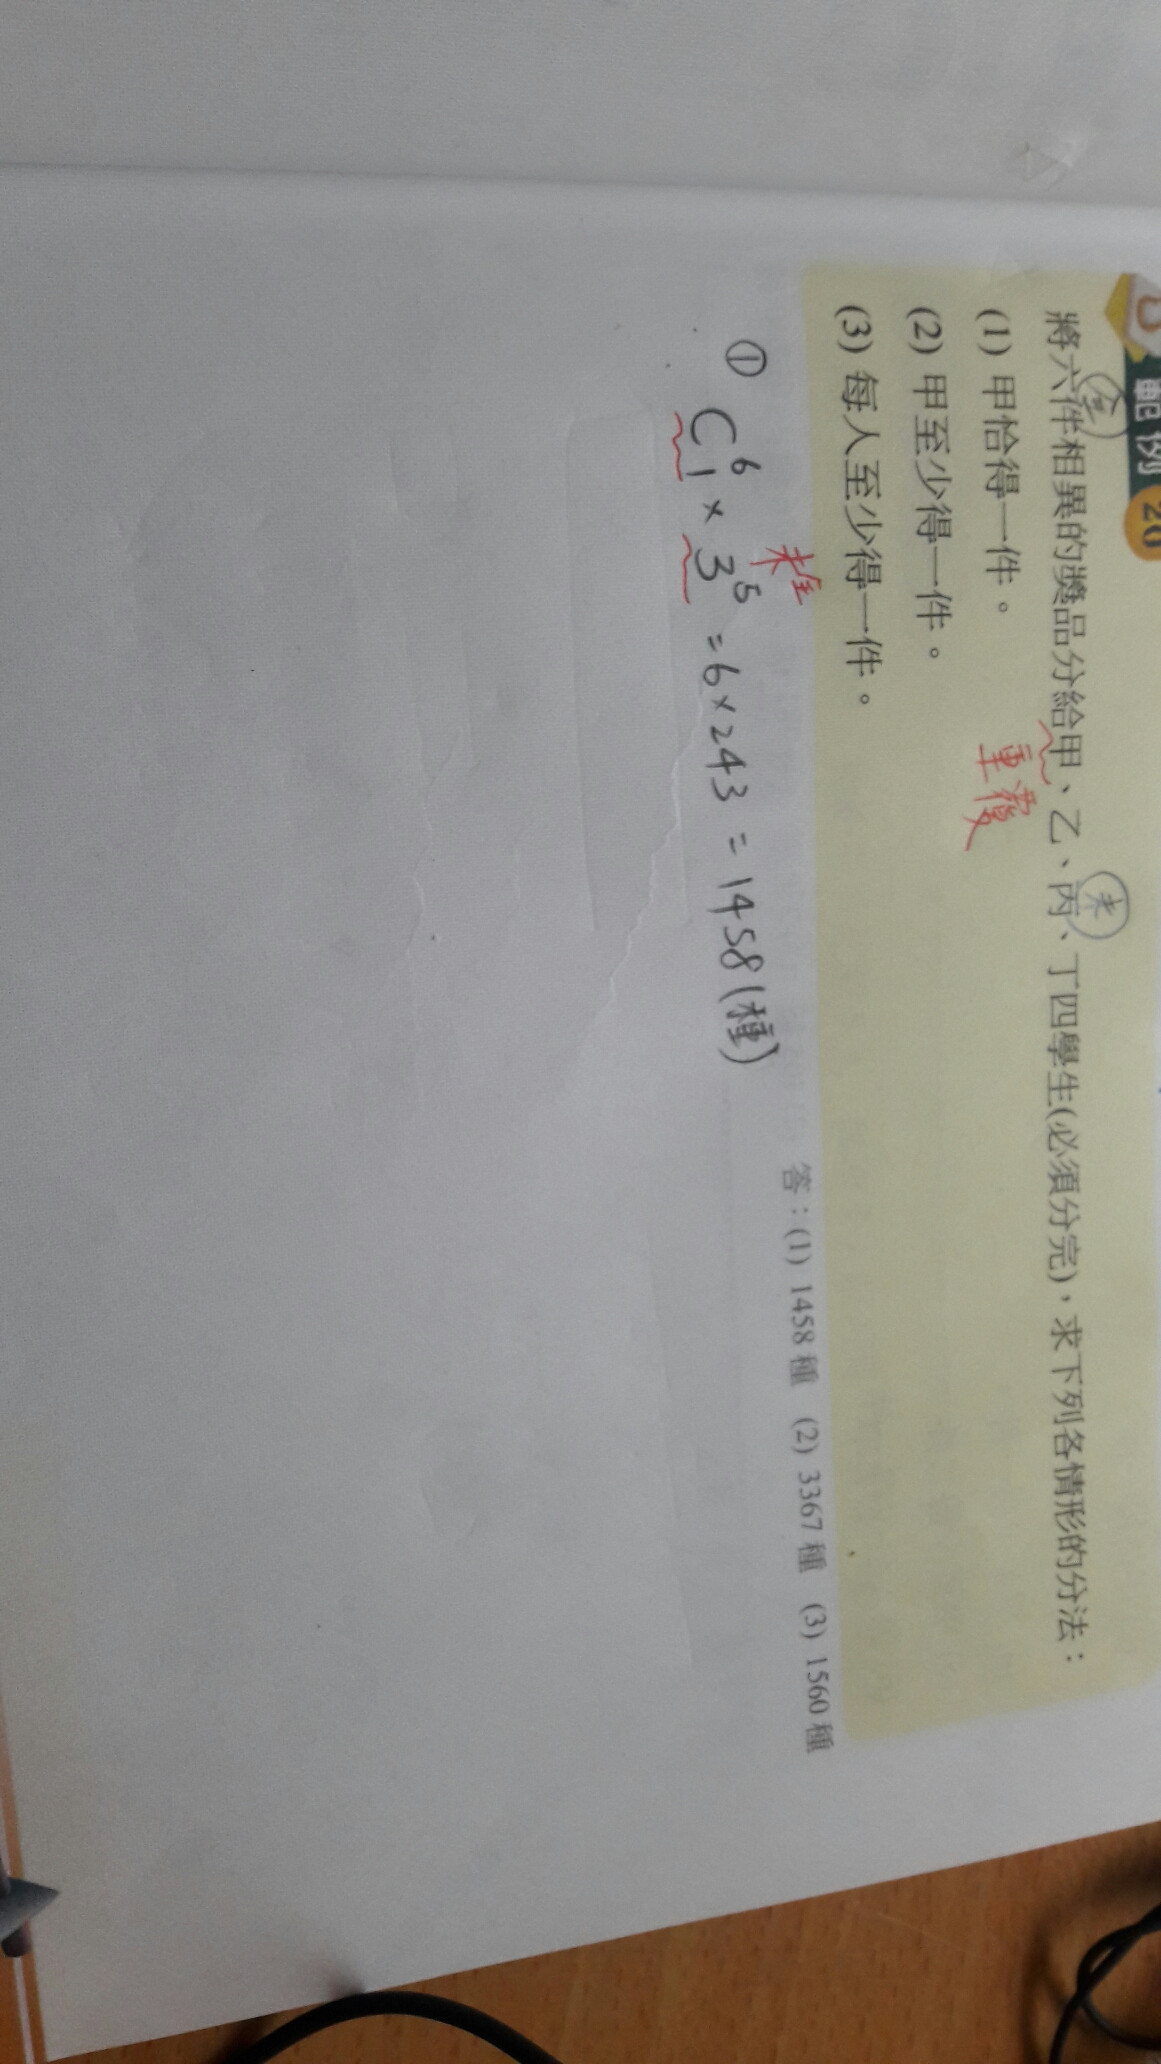 範例 20
將六件相異的獎品分給甲、乙、丙、丁四學生(必須分完)，求下列各情形的分法：
(1) 甲恰得一件。
重覆
(2) 甲至少得一件。
(3) 每人至少得一件。
答：(1) 1458 種 (2) 3367 種 (3) 1560 種
① C⁶₁ × 3⁵ = 6×243 = 1458(種)